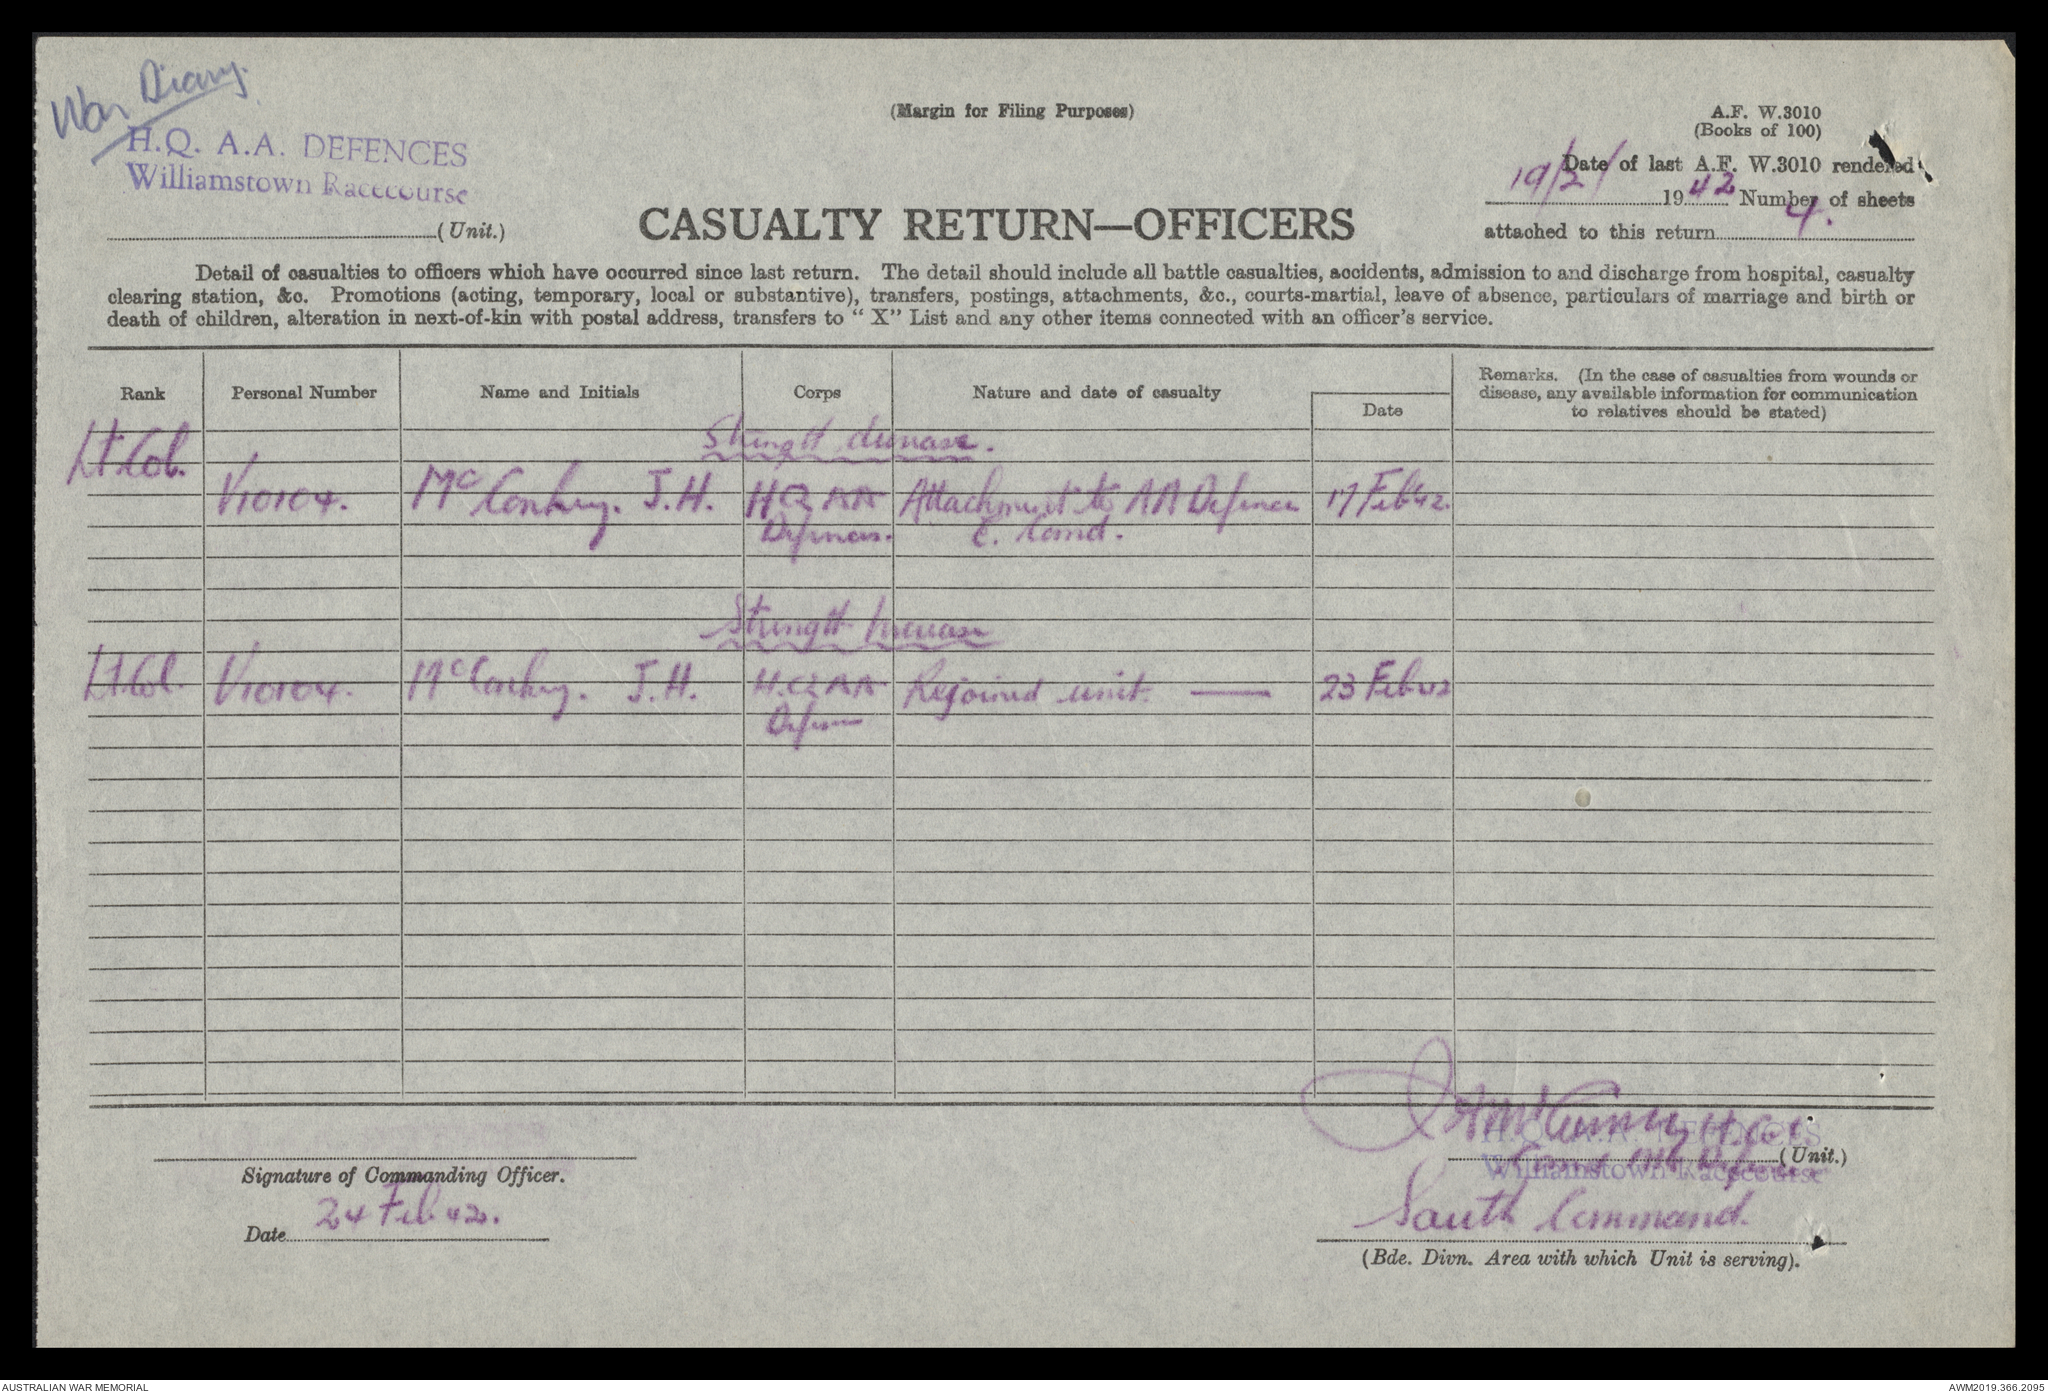 War Diary.
(Margin for Filing Purposes)
A.F. W.3010
(Books of 100)
H.Q. A.A. DEFENCES
Williamstown Racecourse
(Unit.)
Date of last A.F. W.3010 rendered
19/2/ 1942 Number of sheets
attached to this return 4.
CASUALTY RETURN—OFFICERS
Detail of casualties to officers which have occurred since last return. The detail should include all battle casualties, accidents, admission to and discharge from hospital, casualty
clearing station, &c. Promotions (acting, temporary, local or substantive), transfers, postings, attachments, &c., courts-martial, leave of absence, particulars of marriage and birth or
death of children, alteration in next-of-kin with postal address, transfers to “ X” List and any other items connected with an officer's service.
Rank Personal Number Name and Initials Corps Nature and date of casualty Date Remarks. (In the case of casualties from wounds or
disease, any available information for communication
to relatives should be stated)
Strength decrease.
Lt Col. V10104. McConkey. J.H. H Q AA Attachment to AA Defence 17 Feb 42.
Defences. E. Comd.
Strength Increase
Lt.Col. V10104. McConkey. J.H. H.Q AA Rejoined unit. — 23 Feb 42
Defences
H.Q. A.A. DEFENCES
(Unit.)
Williamstown Racecourse
Signature of Commanding Officer.
Date 24 Feb 42.
South Command.
(Bde. Divn. Area with which Unit is serving).
AUSTRALIAN WAR MEMORIAL
AWM2019.366.2095